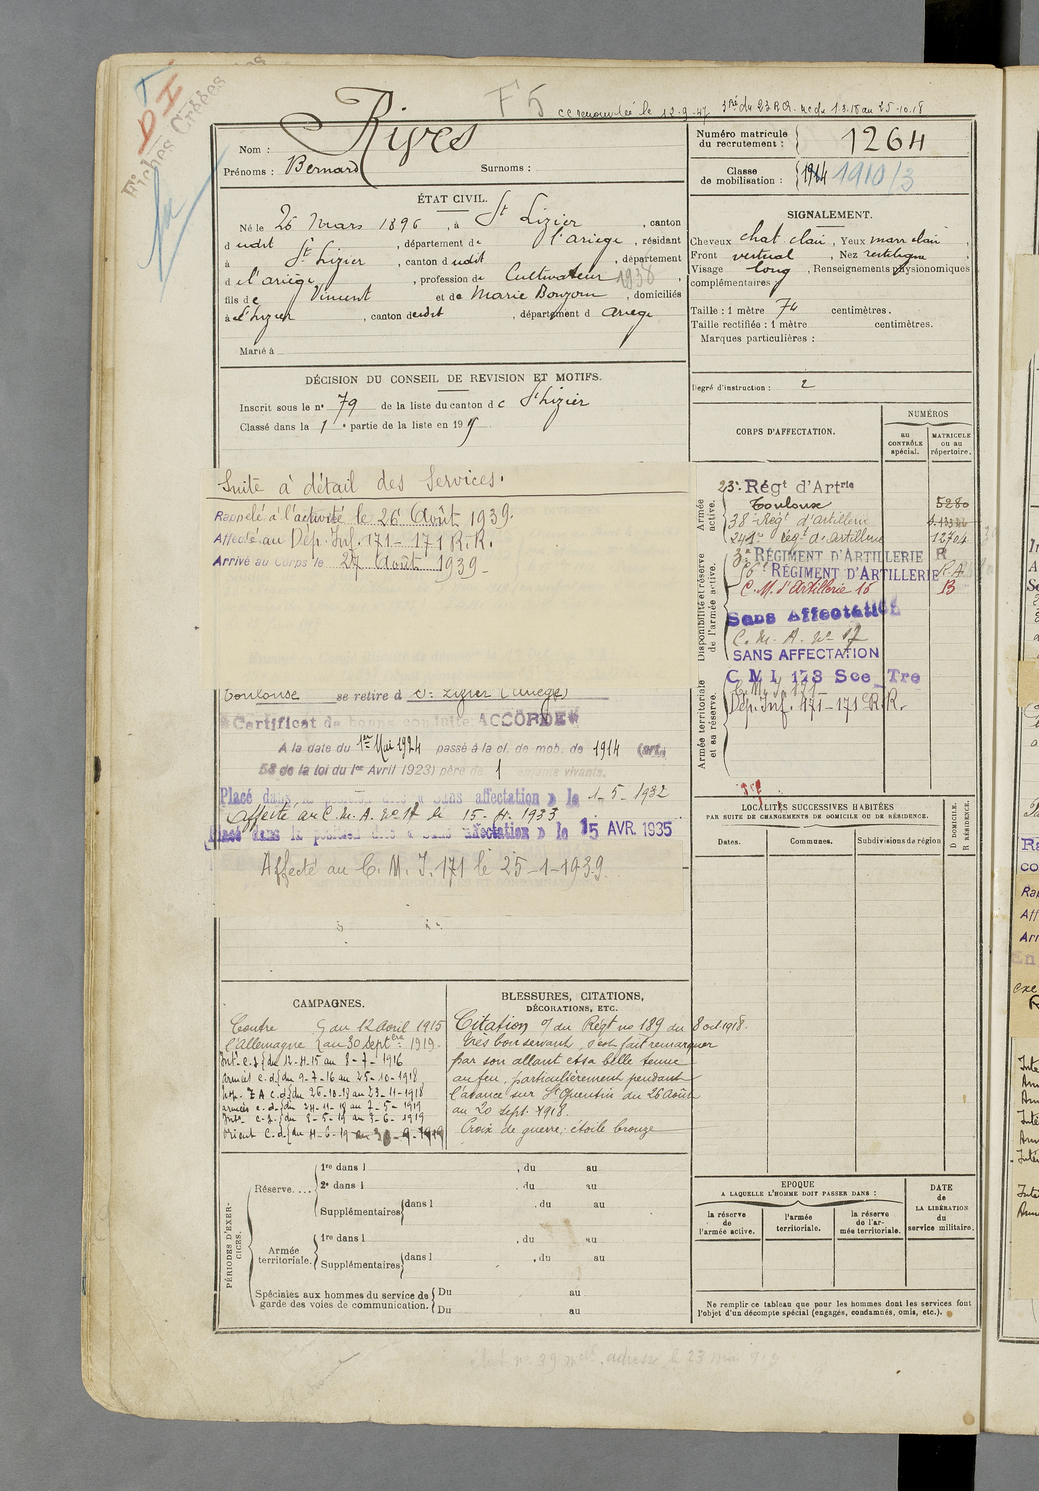 F5 cc renouvelée le 12-9-47 3re du 23 RA. rc du 1.3.18 au 25-10-18
T
D I
Fiches Croisées
Nom : Rives
Prénoms : Bernard Surnoms :
Numéro matricule du recrutement : 1264
Classe de mobilisation : 1914 1910/3
ÉTAT CIVIL.
Né le 26 Mars 1896, à St Lizier, canton
dudit, département de l'ariège, résidant
à St Lizier, canton dudit, département
de l'ariège, profession de Cultivateur 1938
fils de Vincent et de Marie Bouzom, domiciliés
à St Lizier, canton dudit, département d ariège
Marié à
SIGNALEMENT.
Cheveux chat clair, Yeux marr clair
Front vertical, Nez rectiligne
Visage long, Renseignements physionomiques
complémentaires
Taille : 1 mètre 74 centimètres.
Taille rectifiée : 1 mètre centimètres.
Marques particulières :
Degré d'instruction : 2
DÉCISION DU CONSEIL DE REVISION ET MOTIFS.
Inscrit sous le n° 79 de la liste du canton de St Lizier
Classé dans la 1e partie de la liste en 1915
Suite à détail des Services.
Rappelé à l'activité le 26 Août 1939.
Affecté au Dép. Inf. 171 - 171 R.R.
Arrivé au Corps le 27 Août 1939
Toulouse se retire à St Lizier (Ariège)
Certificat de bonne conduite ACCORDÉ
A la date du 1er Mai 1924 passé à la cl. de mob. de 1914 (art.
58 de la loi du 1er Avril 1923) père de 1 enfants vivants.
Placé dans la position dite « Sans affectation » le 1-5-1932
Affecté au C.M.A. n° 17 le 15-4-1933
Placé dans la position dite « Sans affectation » le 15 AVR. 1935
Affecté au C. M. I. 171 le 25-1-1939.
CORPS D'AFFECTATION.
NUMÉROS
au CONTRÔLE spécial.
MATRICULE ou au répertoire.
Armée active.
23e Régt d'Artrie
Toulouse 5280
38e Régt d'artillerie
241e Régt d'artillerie 12704
Disponibilité et réserve de l'armée active.
3e RÉGIMENT D'ARTILLERIE R
16e RÉGIMENT D'ARTILLERIE R.A
C. M. d'Artillerie 16 B
Sans Affectation
C. M. A. n° 17
SANS AFFECTATION
Armée territoriale et sa réserve.
C M I 173 Sce Tre
C. M. I. 171
Dép. Inf. 171 - 171e R.R.
LOCALITÉS SUCCESSIVES HABITÉES
PAR SUITE DE CHANGEMENTS DE DOMICILE OU DE RÉSIDENCE.
Dates. Communes. Subdivisions de région D. DOMICILE. R. RÉSIDENCE.
CAMPAGNES.
Contre du 12 Avril 1915
l'Allemagne au 30 Septbre 1919.
Intr c.s. du 12-4-15 au 8-7-1916
armées c.d. du 9-7-16 au 25-10-1918
Hop. Z A c.d. du 26-10-18 au 23-11-1918
armées c.d. du 24-11-18 au 2-5-1919
Intr c.s. du 3-5-19 au 3-6-1919
Orient c.d. du 4-6-19 au 30-9-1919
BLESSURES, CITATIONS, DÉCORATIONS, ETC.
Citation o/ du Régt no 189 du 8 oct 1918.
très bon servant, s'est fait remarquer
par son allant et sa belle tenue
au feu, particulièrement pendant
l'avance sur St Quentin du 26 Août
au 20 sept. 1918.
Croix de guerre : étoile bronze
PÉRIODES D'EXERCICES.
Réserve....
1re dans l , du au
2e dans l , du au
Supplémentaires dans l , du au
Armée territoriale.
1re dans l , du au
Supplémentaires dans l , du au
Spéciales aux hommes du service de garde des voies de communication.
Du au
Du au
EPOQUE
A LAQUELLE L'HOMME DOIT PASSER DANS :
la réserve de l'armée active.
l'armée territoriale.
la réserve de l'armée territoriale.
DATE de LA LIBÉRATION du service militaire.
Ne remplir ce tableau que pour les hommes dont les services font
l'objet d'un décompte spécial (engagés, condamnés, omis, etc.).